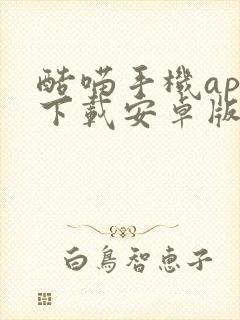 酷喵手機ap
下載安卓版
白鳥智恵子